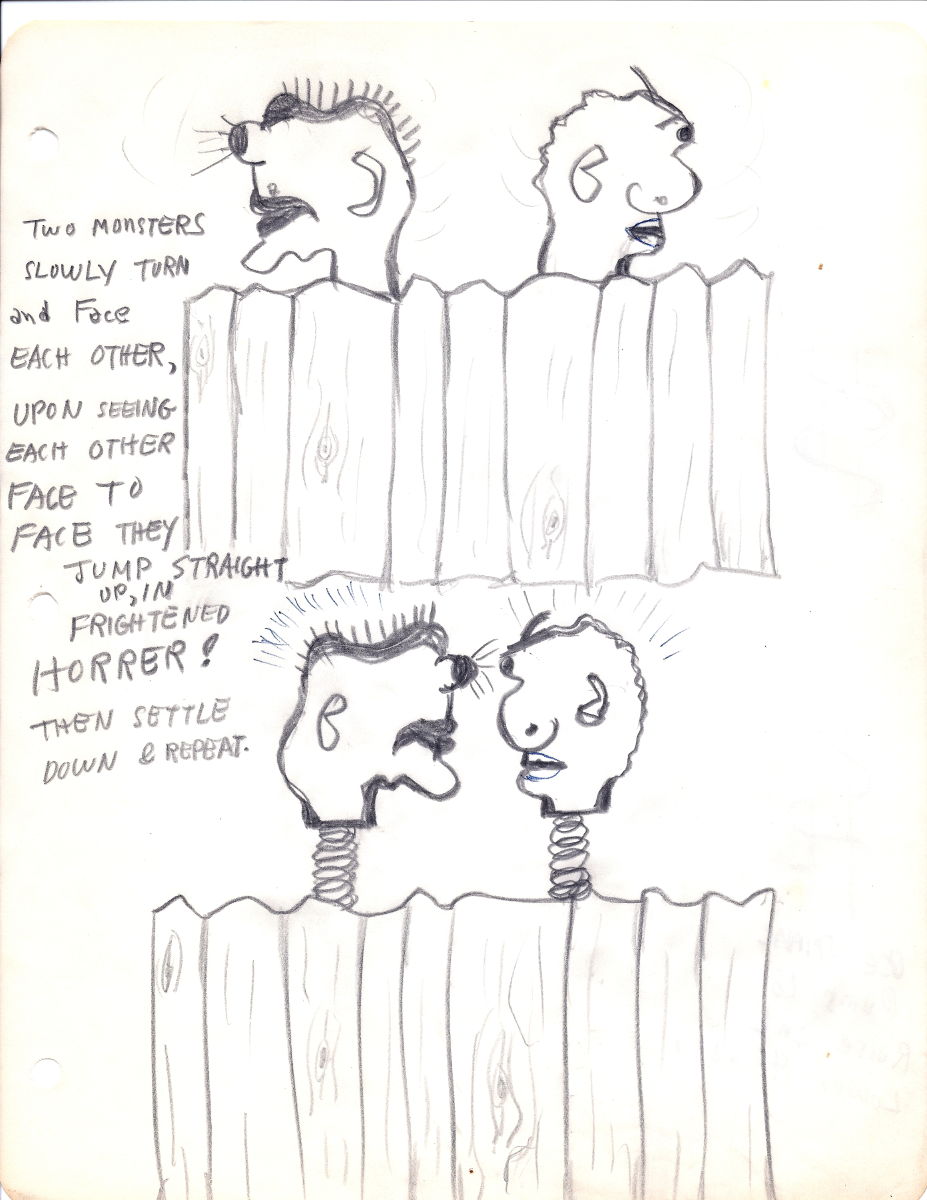 TWO MONSTERS
SLOWLY TURN
and Face
EACH OTHER,
UPON SEEING
EACH OTHER
FACE TO
FACE THEY
JUMP STRAIGHT
UP, IN
FRIGHTENED
HORRER!
THEN SETTLE
DOWN & REPEAT.